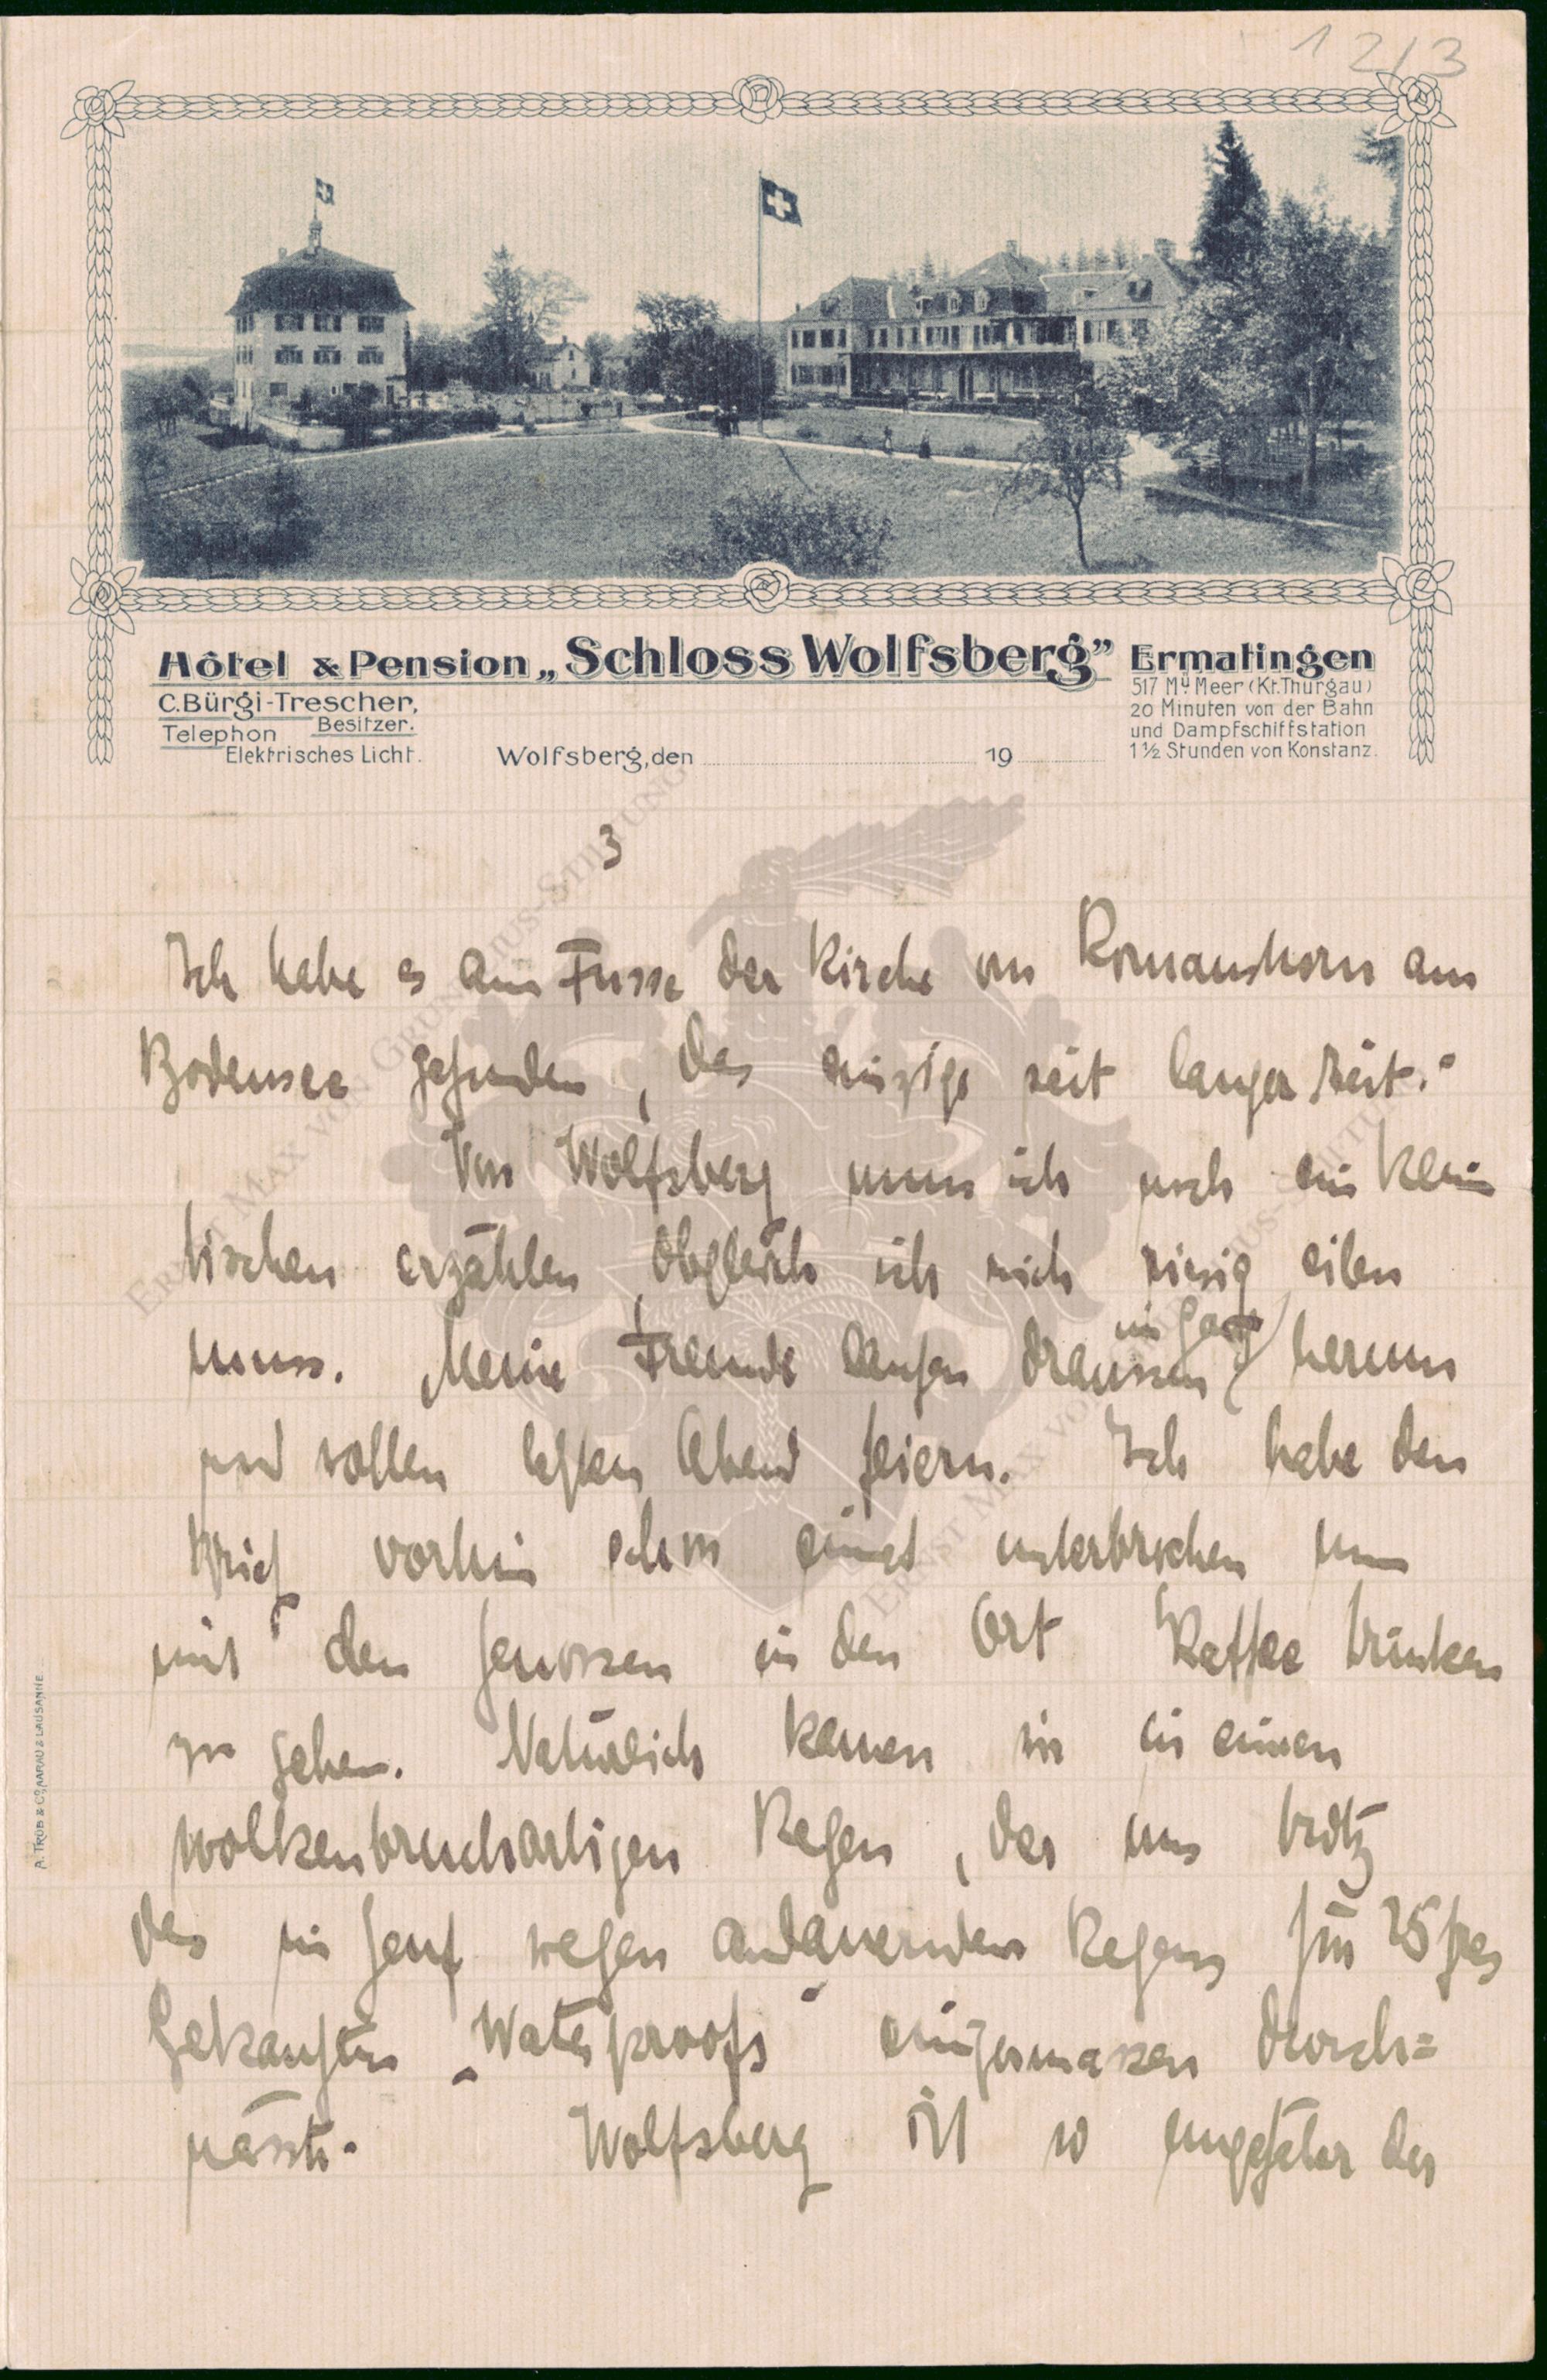 12/3
Hôtel & Pension „Schloss Wolfsberg” Ermatingen
C. Bürgi-Trescher,
Besitzer.
Telephon
Elektrisches Licht.
517 M ü Meer (Kt. Thurgau)
20 Minuten von der Bahn
und Dampfschiffstation
1 ½ Stunden von Konstanz.
Wolfsberg, den 19
3
Ich habe es am Fusse der Kirche von Romanshorn am
Bodensee gefunden, das einzige seit langer Zeit."
Von Wolfsberg muss ich noch ein klein
bischen erzählen, obgleich ich mich riesig eilen
muss. Meine Freunde laufen draussen im Gang herum
und wollen letzten Abend feiern. Ich habe den
Brief vorhin schon einmal unterbrochen um
mit den Genossen in den Ort Kaffee trinken
zu gehen. Natürlich kamen wir in einen
wolkenbruchartigen Regen, der uns trotz
des in Genf wegen andauernden Regens für 25 frcs
gekauften „Waterproofs" einigermassen durch=
nässte. Wolfsberg ist so ungefähr das
A. TRÜB & Cº, AARAU & LAUSANNE
ERNST MAX VON GRUNELIUS-STIFTUNG
ERNST MAX VON GRUNELIUS-STIFTUNG